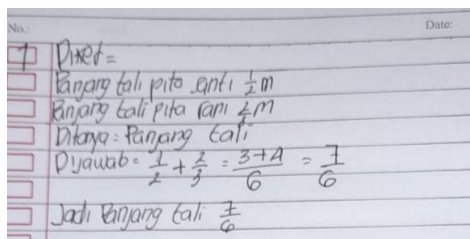 No.:
Date:
1 Diket =
Panjang tali pita anti 1/2 m
Panjang tali pita rani 2/3 m
Ditanya = Panjang tali
Dijawab = 1/2 + 2/3 = 3+4/6 = 7/6
Jadi Panjang tali 7/6